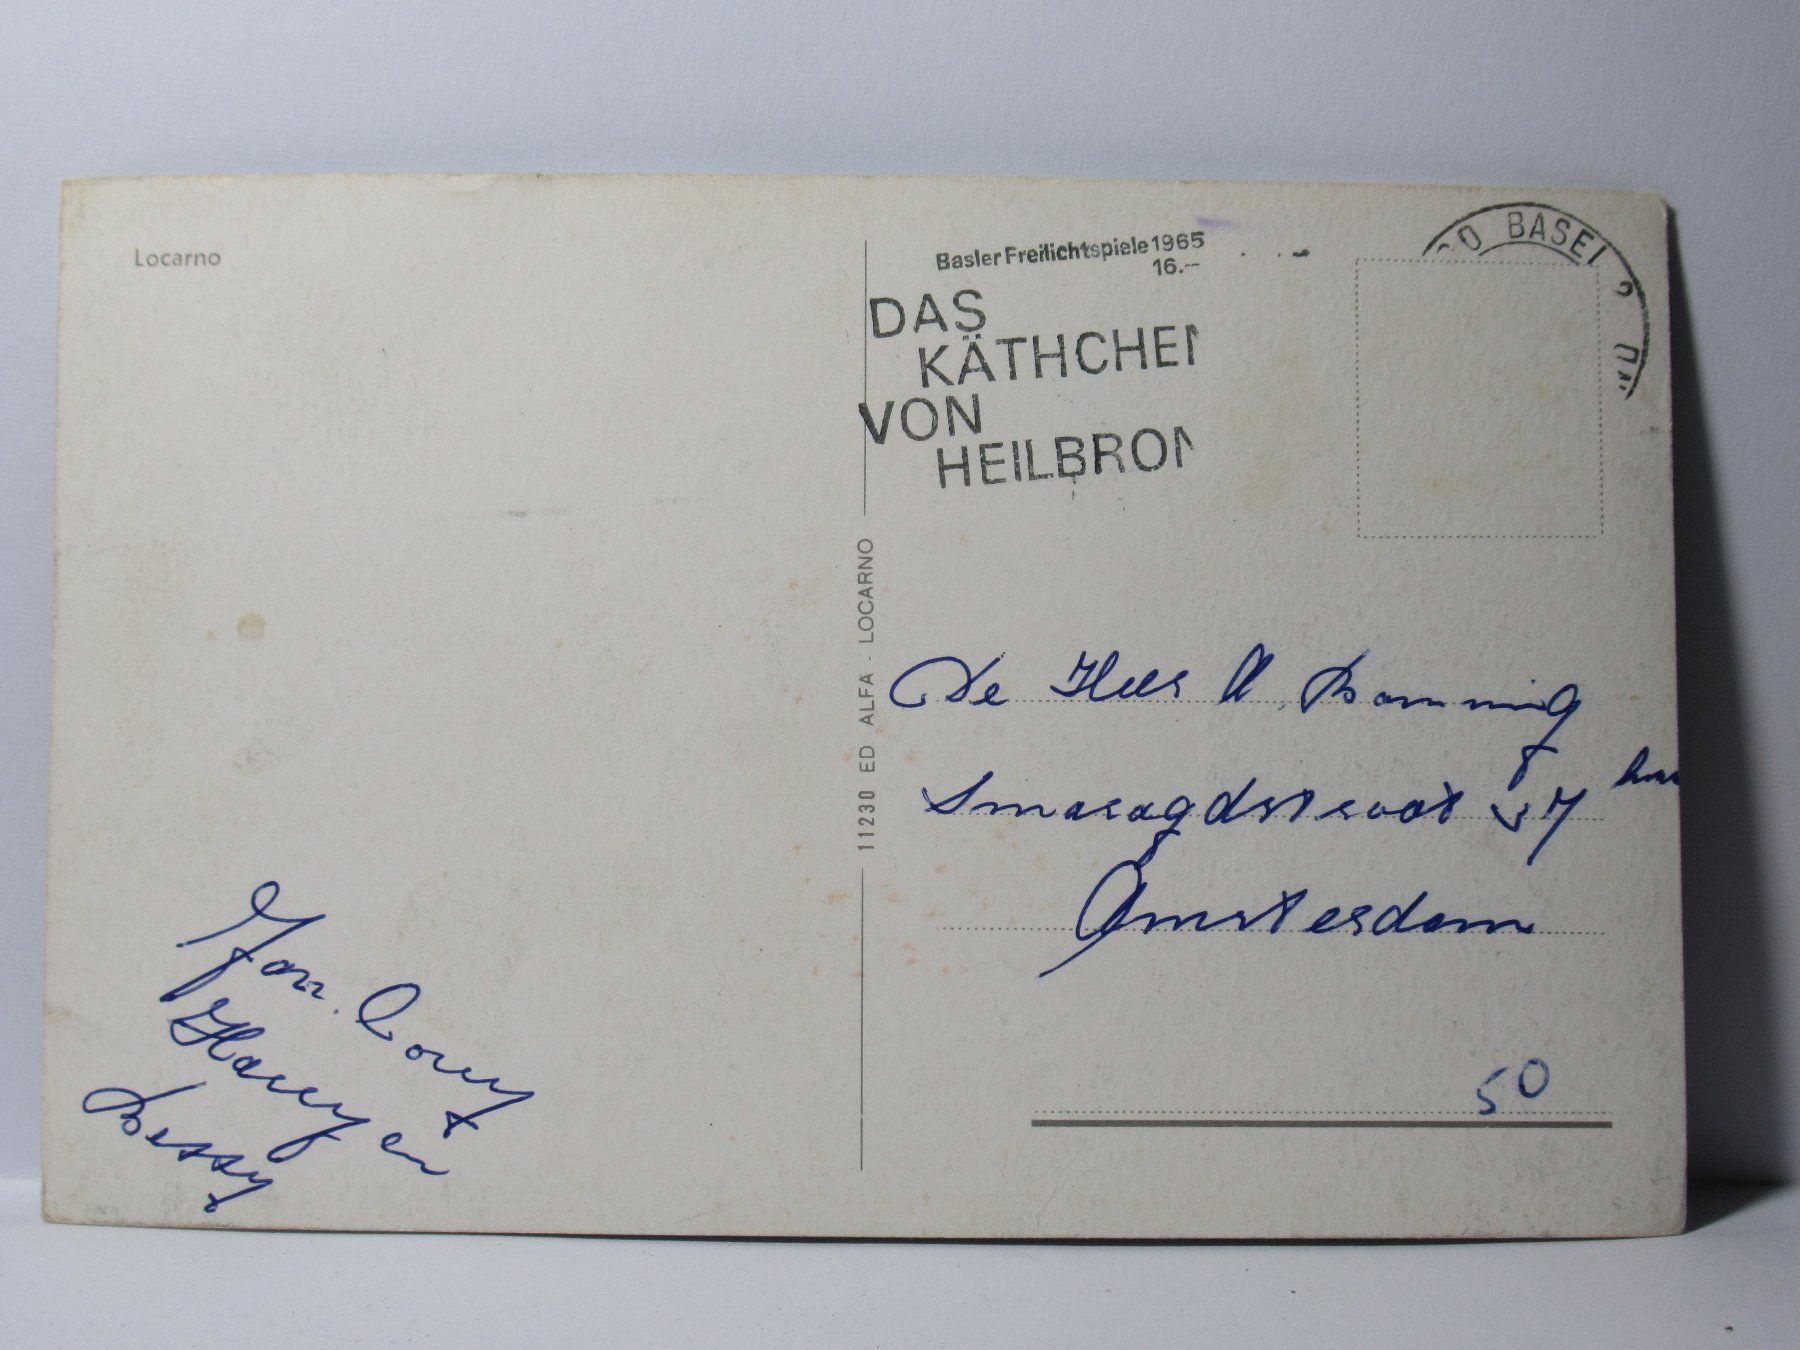 Locarno
Basler Freilichtspiele 1965
16.–
DAS
KÄTHCHEN
VON
HEILBRON
BASEL 2
11230 ED ALFA - LOCARNO
De Heer Bamming
Smaragdstraat 37 huis
Amsterdam
Jan. Corry
Harry en
Bessy
50